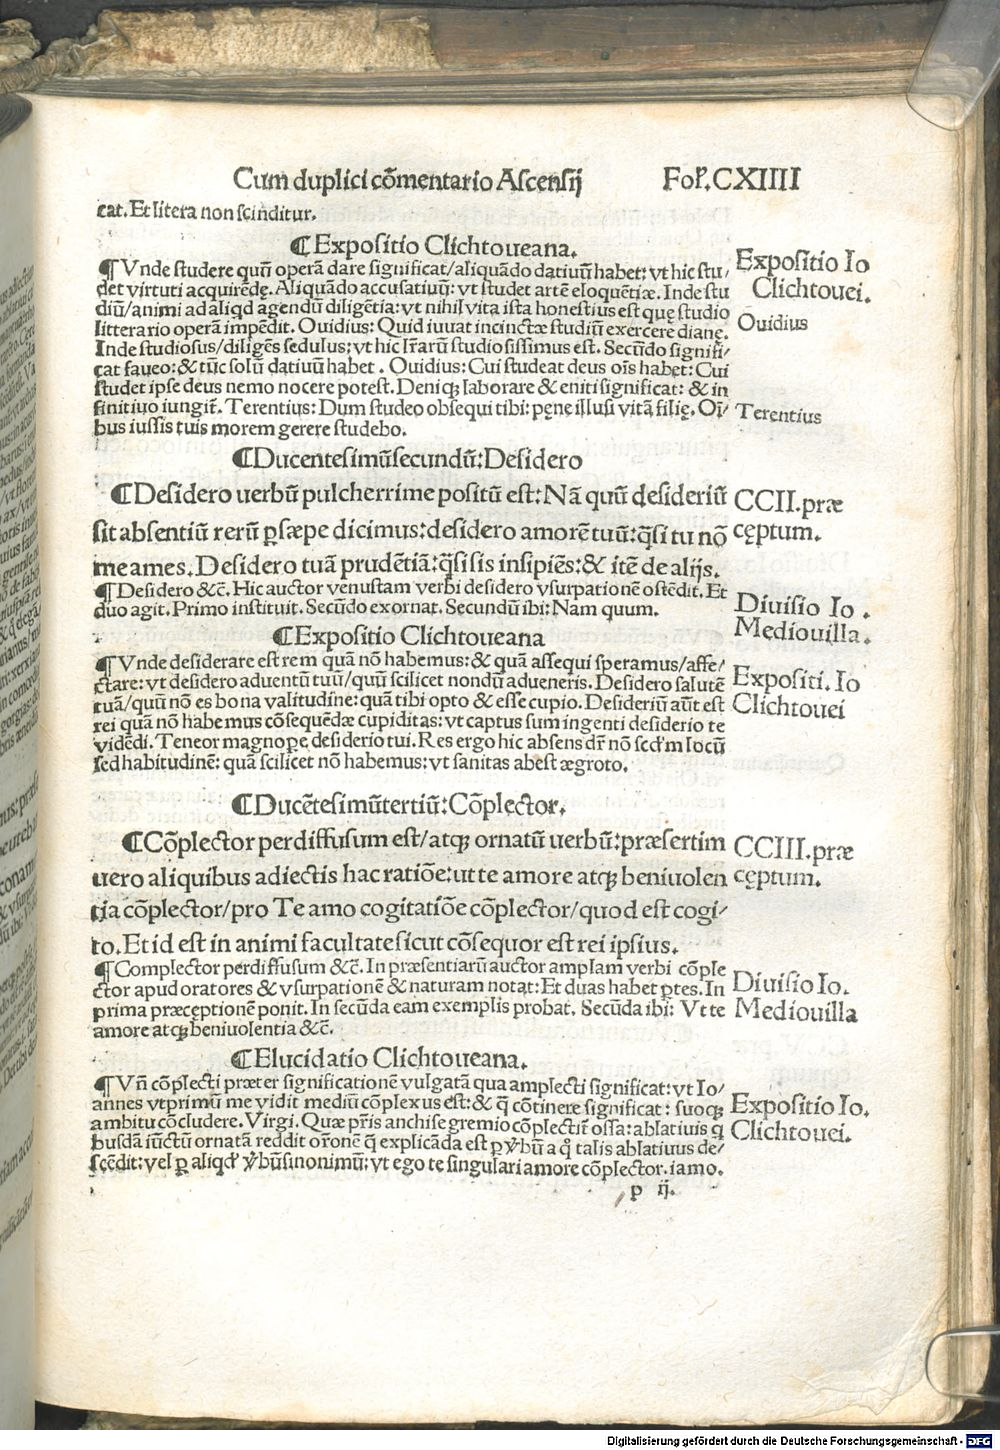 Cum duplici cōmentario Ascensij Fol. CXIIII
cat. Et litera non scinditur.
¶ Expositio Clichtoueana.
¶ Vnde studere quū operā dare significat/aliquādo datiuū habet: vt hic stu/
det virtuti acquirēdę. Aliquādo accusatiuū: vt studet artē eloquētiæ. Inde stu
diū/animi ad aliqd agendū diligētia: vt nihil vita ista honestius est quę studio
litterario operā impēdit. Ouidius: Quid iuuat incinctæ studiū exercere dianę.
Inde studiosus/diligēs sedulus: vt hic lr̄arū studiosissimus est. Secūdo signifi/
cat faueo: & tūc solū datiuū habet. Ouidius: Cui studeat deus oīs habet: Cui
studet ipse deus nemo nocere potest. Deniqꝫ laborare & eniti significat: & in
finitiuo iungit̄. Terentius: Dum studeo obsequi tibi: pęne illusi vitā filię. Oī/
bus iussis tuis morem gerere studebo.
Expositio Io
Clichtouei.
Ouidius
Terentius
¶ Ducentesimūsecundū: Desidero
¶ Desidero uerbū pulcherrime positū est: Nā quū desideriū
sit absentiū rerū ꝑsæpe dicimus: desidero amorē tuū: q̄si tu nō
me ames. Desidero tuā prudētiā: q̄si sis insipiēs: & itē de alijs.
CCII. præ
cęptum.
¶ Desidero &c̄. Hic auctor venustam verbi desidero vsurpationē ostēdit. Et
duo agit. Primo instituit. Secūdo exornat. Secundū ibi: Nam quum.
Diuisio Io.
Mediouilla.
¶ Expositio Clichtoueana
¶ Vnde desiderare est rem quā nō habemus: & quā assequi speramus/affe/
ctare: vt desidero aduentū tuū/quū scilicet nondū adueneris. Desidero salutē
tuā/quū nō es bona valitudine: quā tibi opto & esse cupio. Desideriū aūt est
rei quā nō habemus cōsequēdæ cupiditas: vt captus sum ingenti desiderio te
vidēdi. Teneor magnopę desiderio tui. Res ergo hic absens dr̄ nō scdm locū
sed habitudinē: quā scilicet nō habemus: vt sanitas abest ægroto.
Expositi. Io
Clichtouei
¶ Ducētesimūtertiū: Cōplector.
¶ Cōplector perdiffusum est/atqꝫ ornatū uerbū: præsertim
uero aliquibus adiectis hac ratiōe: ut te amore atqꝫ beniuolen
tia cōplector/pro Te amo cogitatiōe cōplector/quod est cogi/
to. Et id est in animi facultate sicut cōsequor est rei ipsius.
CCIII. præ
cęptum.
¶ Complector perdiffusum &c̄. In præsentiarū auctor amplam verbi cōple
ctor apud oratores & vsurpationē & naturam notat: Et duas habet ꝑtes. In
prima præceptionē ponit. In secūda eam exemplis probat. Secūda ibi: Vt te
amore atqꝫ beniuolentia &c̄.
Diuisio Io.
Mediouilla
¶ Elucidatio Clichtoueana.
¶ Vn̄ cōplecti præter significationē vulgatā qua amplecti significat: vt Io/
annes vt primū me vidit mediū cōplexus est: & q̄ cōtinere significat: suoqꝫ
ambitu cōcludere. Virgi. Quæ pr̄is anchise gremio cōplectit̄ ossa: ablatiuis q
busdā iūctū ornatā reddit or̄onē q̄ explicāda est ꝑ v̄bū a q̊ talis ablatiuus de/
scēdit: vel ꝑ aliqd' v̄bū sinonimū: vt ego te singulari amore cōplector. i amo.
Expositio Io.
Clichtouei.
p ij.
Digitalisierung gefördert durch die Deutsche Forschungsgemeinschaft - DFG